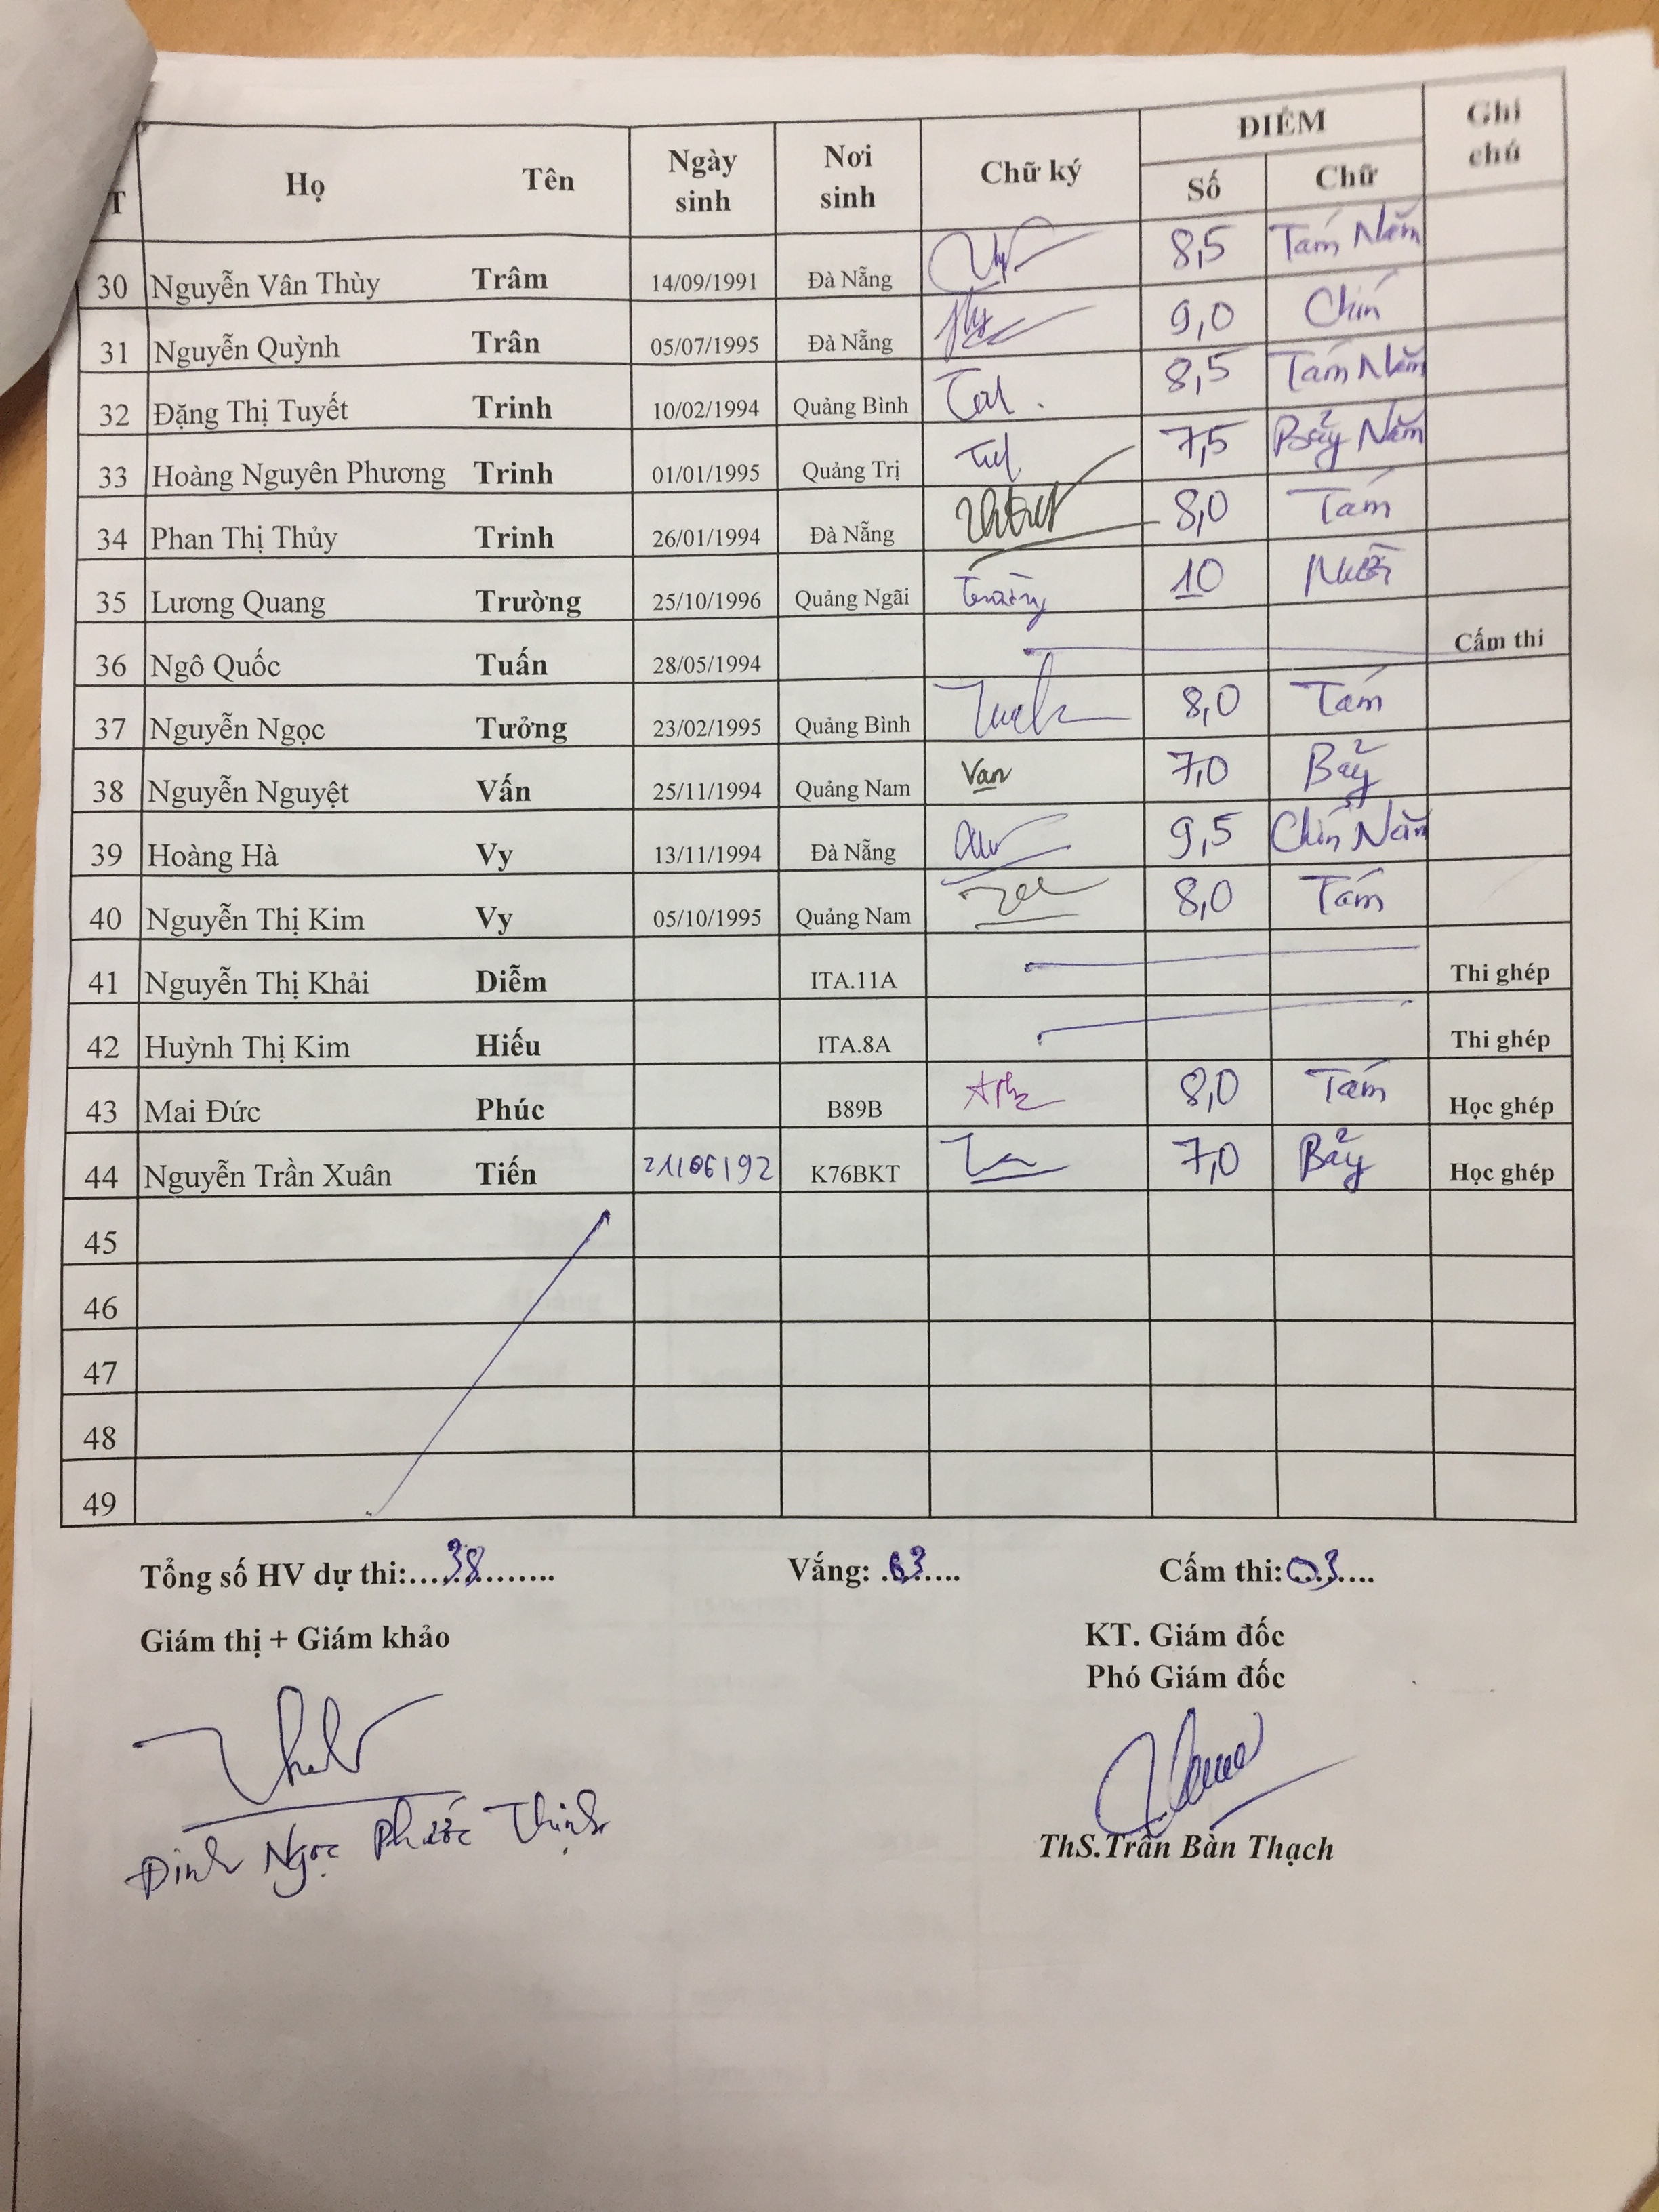 T Họ Tên Ngày sinh Nơi sinh Chữ ký ĐIỂM Số Chữ Ghi chú
30 Nguyễn Vân Thùy Trâm 14/09/1991 Đà Nẵng 8,5 Tám Năm
31 Nguyễn Quỳnh Trân 05/07/1995 Đà Nẵng 9,0 Chín
32 Đặng Thị Tuyết Trinh 10/02/1994 Quảng Bình 8,5 Tám Năm
33 Hoàng Nguyên Phương Trinh 01/01/1995 Quảng Trị 7,5 Bảy Năm
34 Phan Thị Thủy Trinh 26/01/1994 Đà Nẵng 8,0 Tám
35 Lương Quang Trường 25/10/1996 Quảng Ngãi Trường 10 Mười
36 Ngô Quốc Tuấn 28/05/1994 Cấm thi
37 Nguyễn Ngọc Tưởng 23/02/1995 Quảng Bình 8,0 Tám
38 Nguyễn Nguyệt Vấn 25/11/1994 Quảng Nam Van 7,0 Bảy
39 Hoàng Hà Vy 13/11/1994 Đà Nẵng 9,5 Chín Năm
40 Nguyễn Thị Kim Vy 05/10/1995 Quảng Nam 8,0 Tám
41 Nguyễn Thị Khải Diễm ITA.11A Thi ghép
42 Huỳnh Thị Kim Hiếu ITA.8A Thi ghép
43 Mai Đức Phúc B89B 8,0 Tám Học ghép
44 Nguyễn Trần Xuân Tiến 21/06/92 K76BKT 7,0 Bảy Học ghép
45
46
47
48
49
Tổng số HV dự thi:....38........... Vắng: .03..... Cấm thi:03.....
Giám thị + Giám khảo KT. Giám đốc
Phó Giám đốc
Đinh Ngọc Phước Thịnh ThS.Trần Bàn Thạch